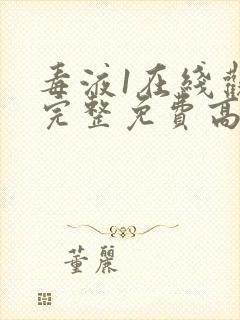 毒液1在线
完整免費高
董麗